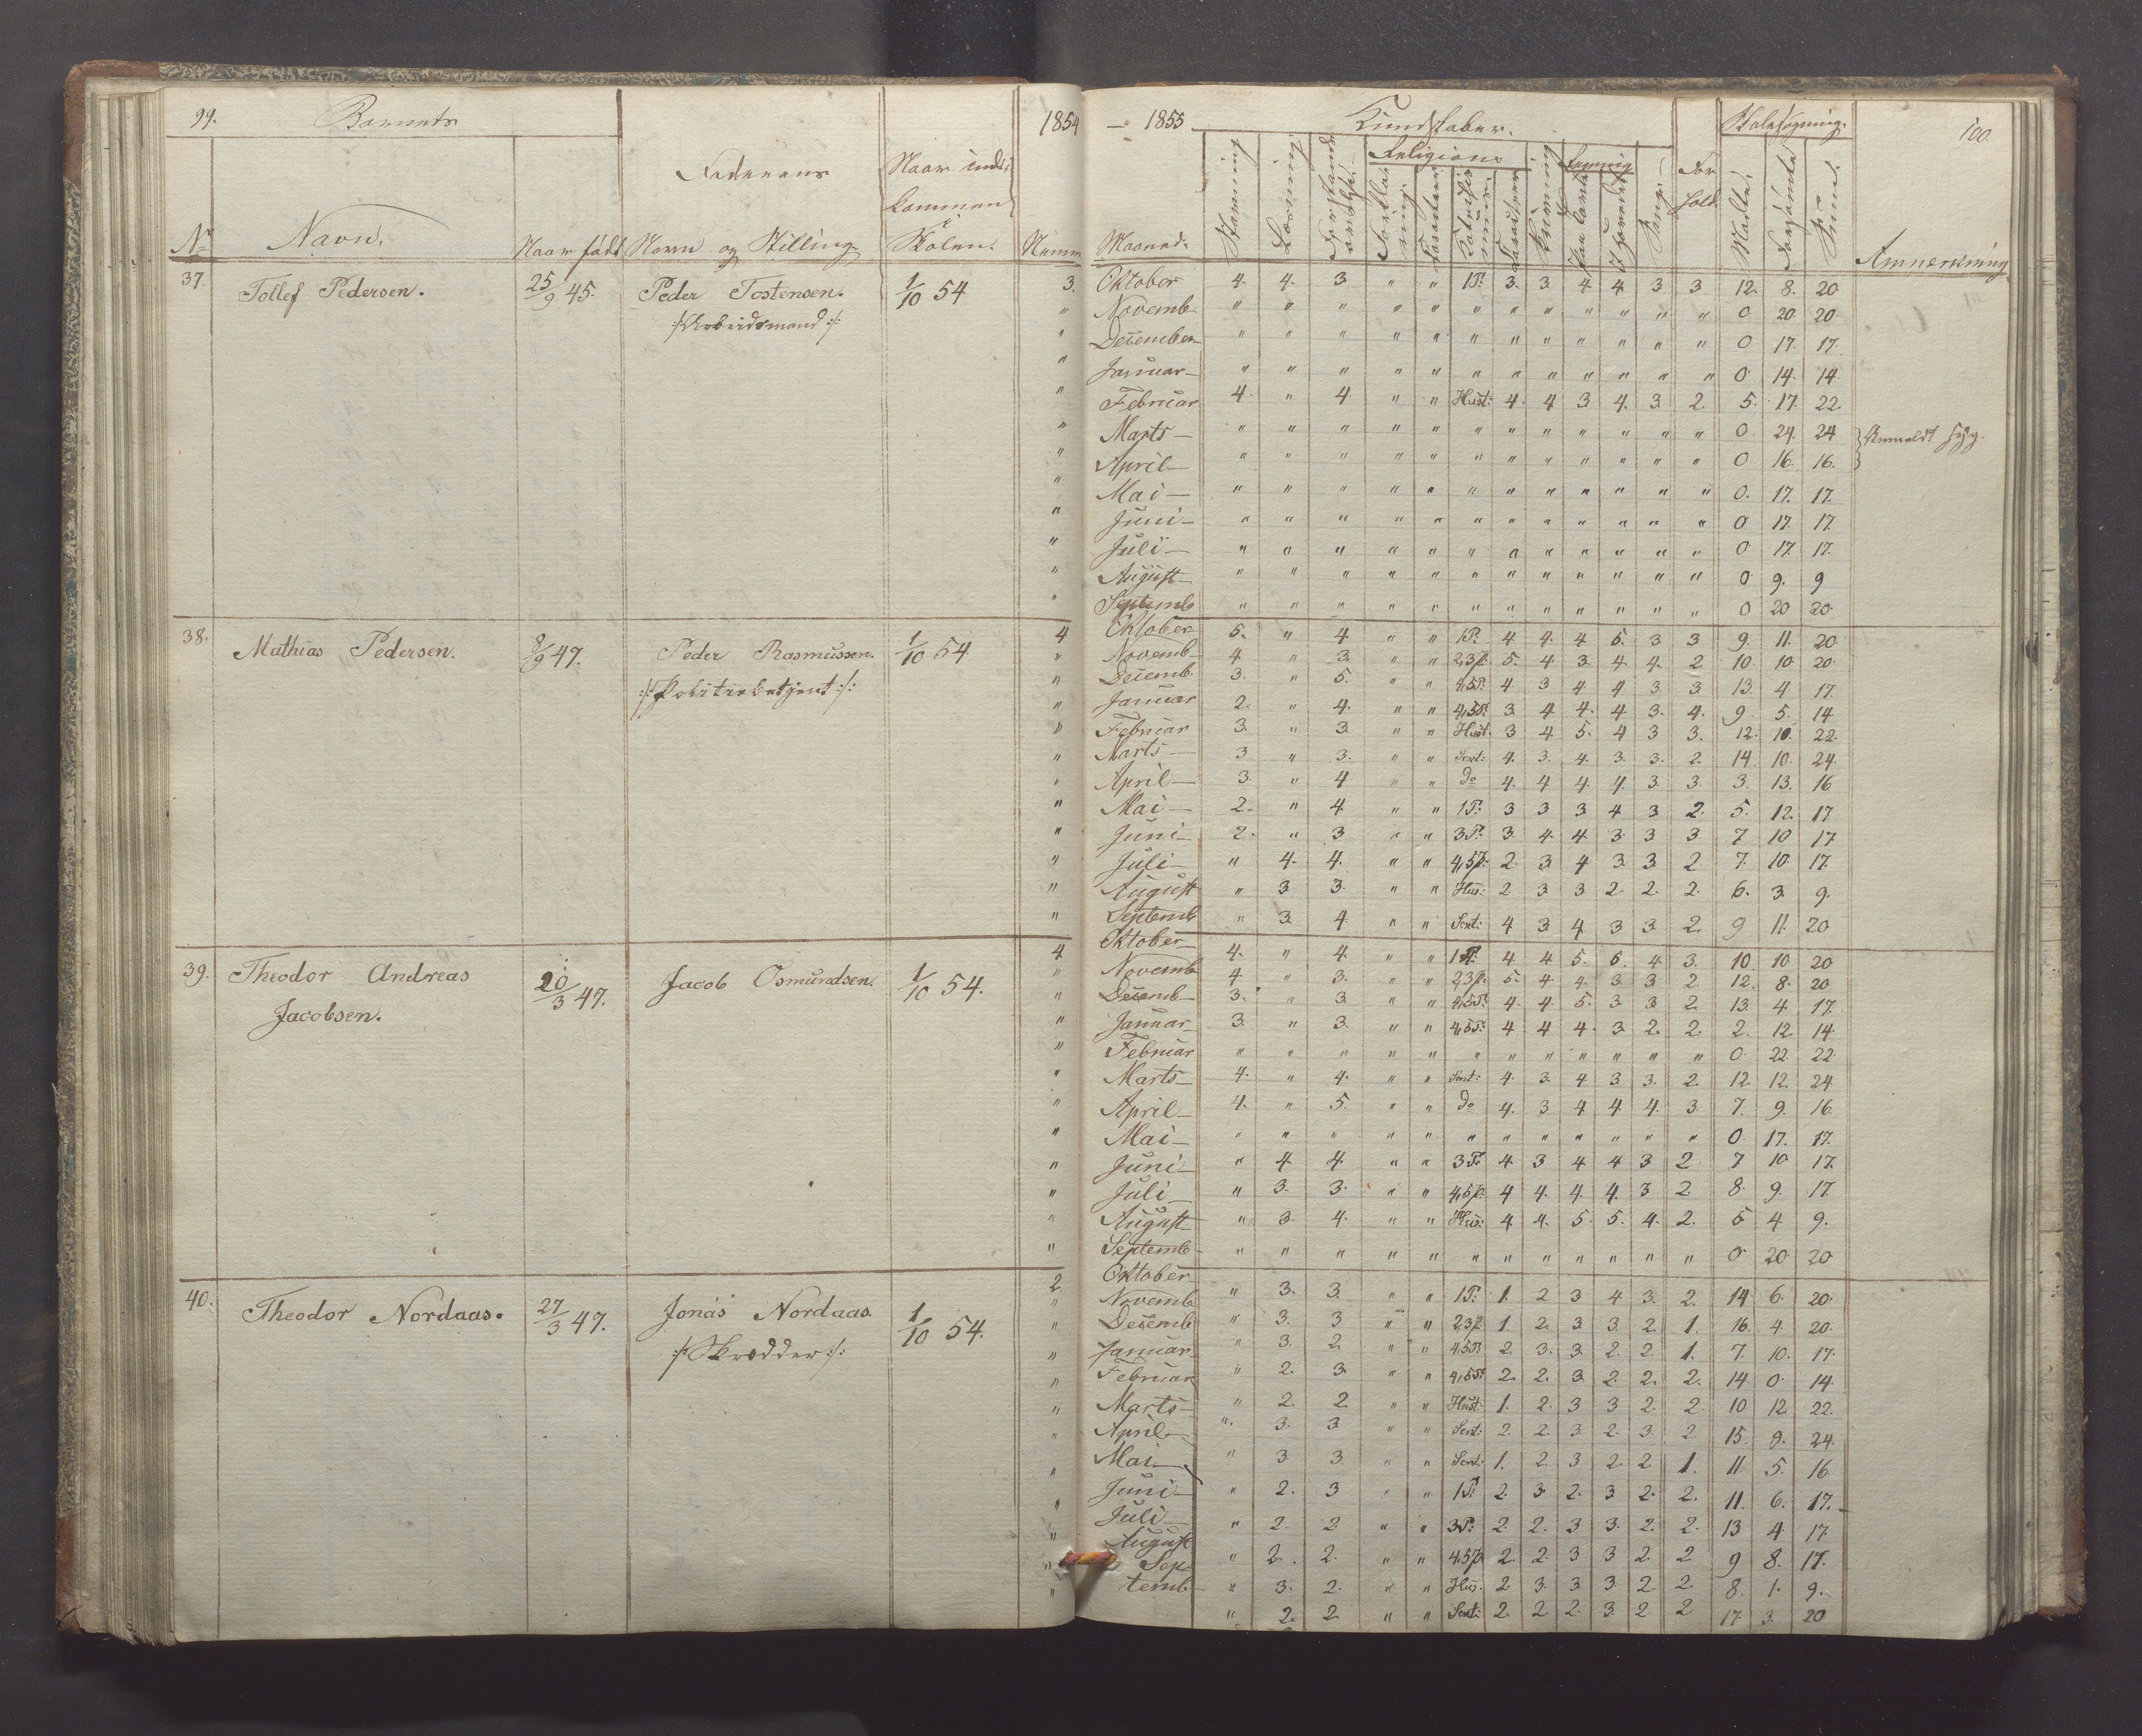 99. Barnets 1854 — 1855 Kundskaber. Skolesøgning. 100.
Faderens Naar ind- Religions Regning For
kommen i hold
No Navn. Naar født Navn og Stilling. Skolen. Numm Maaned. Stavning Læsning Sang. Mødte. Forsømte Sum. Anmærkning
37. Tollef Pedersen. 25/9 45. Peder Tostensen. 1/10 54 3. Oktober 4. 4. 3 " " 1P: 3. 3 4 4 3 3 12. 8. 20
:/:Arbeidsmand:/: " Novemb " " " " " " " " " " " " 0 20. 20.
" Desember " " " " " " " " " " " " 0 17. 17.
" Januar " " " " " " " " " " " " 0 14. 14
" Februar 4 " 4. " " Hust: 4. 4 3 4. 3. 2. 5. 17. 22.
" Marts " " " " " " " " " " " " 0 24. 24 Anmeldt syg.
" April " " " " " " " " " " " " 0. 16. 16.
" Mai " " " " " " " " " " " " 0. 17. 17.
" Juni " " " " " " " " " " " " 0 17. 17.
" Juli " " " " " " " " " " " " 0 17. 17.
" August " " " " " " " " " " " " 0 9. 9
" Septemb " " " " " " " " " " " " 0 20 20.
38. Mathias Pedersen. 8/9 47. Peder Rasmussen. 1/10 54 4 Oktober 5. " 4 " " 1P. 4 4. 4 5. 3 3 9 11. 20.
:/:Politiebetjent:/: " Novemb 4 " 3. " " 2,3p. 5. 4 3 4 4. 2 10. 10 20.
" Desemb 3. " 5. " " 4,5P. 4 3 4 4 3. 3 13. 4 17.
" Januar 2. " 4. " " 4,5P. 3 4 4. 4 3. 4. 9 5. 14
" Februar 3. " 3 " " Hust. 3 4 5. 4 3 3. 12. 10. 22.
" Marts 3 " 3. " " Sent: 4. 3. 4. 3. 3. 2. 14 10. 24
" April 3. " 4 " " do 4. 4 4. 4. 3. 3. 3. 13. 16
" Mai 2. " 4. " " 1P: 3 3 3 4 3 2. 5. 12. 17
" Juni 2. " 3 " " 3P: 3. 4. 4. 3. 3 3. 7 10 17
" Juli " 4. 4. " " 4,5p: 2. 3 4 3. 3 2 7. 10. 17.
" August " 3 3. " " Hus: 2 3 3 2. 2. 2. 6. 3. 9.
" Septemb " 3. 4 " " Sent: 4 3 4 3 3. 2. 9 11. 20
39. Theodor Andreas 20/3 47. Jacob Osmundsen. 1/10 54. 4 Oktober 4. " 4. " " 1P. 4 4 5. 5. 4 3. 10. 10 20
Jacobsen. " Novemb 4 " 3. " " 2,3p. 5. 4 4. 3 3 2. 12. 8. 20
" Desemb 3. " 3 " " 4,5P. 4. 4 5. 3 3. 2 13. 4 17.
" Januar 3. " 3. " " 4,5P: 4 4 4. 3 2. 2. 2. 12 14
" Februar " " " " " " " " " " " " 0. 22. 22.
" Marts 4. " 4. " " Sent: 4. 3. 4 3 3. 2. 12. 12. 24
" April 4. " 5. " " do 4. 3 4 4 4. 3. 7. 9. 16.
" Mai " " " " " " " " " " " " 0. 17. 17.
" Juni " 4 4. " " 3P. 4 3 4 4 3 2 7 10 17.
" Juli " 3. 3. " " 4,5p. 4 4. 4. 4. 3 2 8. 9. 17.
" August " 3. 4. " " Hus: 4 4. 5. 5. 4. 2. 5 4 9.
" Septemb " " " " " " " " " " " " 0 20. 20
40. Theodor Nordaas. 27/3 47. Jonas Nordaas. 1/10 54. 2 Oktober " 3. 3 " " 1P: 1. 2 3 4 3. 2. 14. 6. 20.
:/:Skrædder:/: " Novemb " 3. 3 " " 2,3p. 1. 2. 3. 3. 2 1. 16. 4 20.
" Desemb " 3. 2. " " 4,5P. 2. 3. 3. 2 2. 1. 7. 10. 17.
" Januar " 2. 3. " " 4,5P. 2. 2. 3. 2. 2. 2. 14. 0. 14.
" Februar " 2. 2. " " Hust: 1. 2. 3 3 2. 2 10 12 22.
" Marts " 3. 3 " " Sent: 2. 2. 3 2. 3. 2 15. 9. 24.
" April " 3. 3. " " Sent: 1. 2. 3 2. 2 1. 11. 5. 16.
" Mai " 2. 3 " " 1P. 2. 3. 2. 3 2. 2. 11. 6. 17.
" Juni " 2. 2 " " 3P: 2. 2. 3. 3. 2. 2. 13 4 17
" Juli " 2. 2. " " 4,5p 2 2. 3 3 2. 2 9 8. 17.
" August " 3. 2. " " Hus. 2. 3. 3. 3. 2. 2. 8. 1. 9.
" Sep-
temb " 2. 2. " " Sent: 2. 2 2. 3. 2 2 17. 3. 20